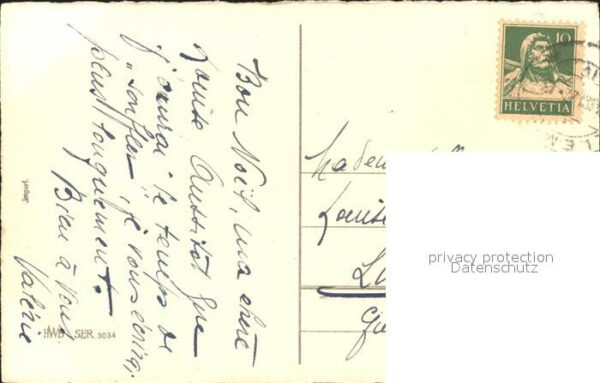 Bon Noël, ma chère
Louise. Aussitôt que
j'aurai le temps de
"souffler" je vous écrirai
plus longuement.
Bien à vous
Valérie
Import.
HWB SER. 3034
10
HELVETIA
Louise
privacy protection
Datenschutz